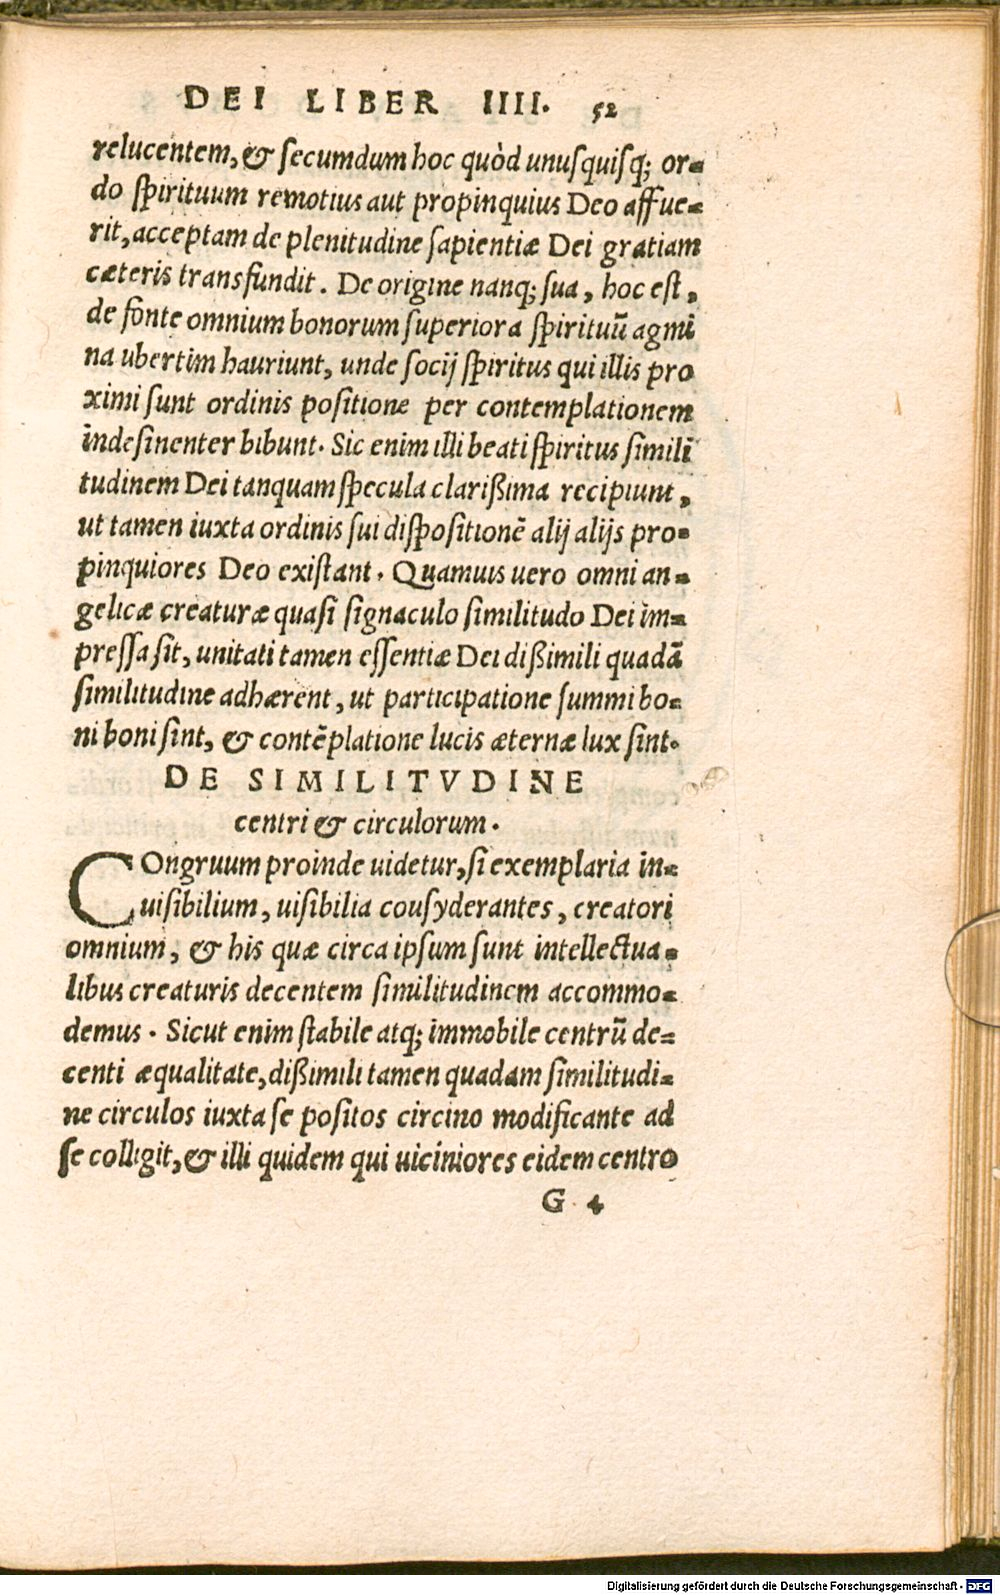 DEI LIBER IIII. 52
relucentem, & secumdum hoc quòd unusquisq; or-
do spirituum remotius aut propinquius Deo affue-
rit, acceptam de plenitudine sapientiæ Dei gratiam
cæteris transfundit. De origine nanq; sua, hoc est,
de fonte omnium bonorum superiora spirituū agmi
na ubertim hauriunt, unde socij spiritus qui illis pro
ximi sunt ordinis positione per contemplationem
indesinenter bibunt. Sic enim illi beati spiritus simili
tudinem Dei tanquam specula clarißima recipiunt,
ut tamen iuxta ordinis sui dispositionē alij alijs pro-
pinquiores Deo existant. Quamuis uero omni an-
gelicæ creaturæ quasi signaculo similitudo Dei im-
pressa sit, unitati tamen essentiæ Dei dißimili quadā
similitudine adhærent, ut participatione summi bo-
ni boni sint, & contēplatione lucis æternæ lux sint.
DE SIMILITVDINE
centri & circulorum.
COngruum proinde uidetur, si exemplaria in-
uisibilium, uisibilia cousyderantes, creatori
omnium, & his quæ circa ipsum sunt intellectua-
libus creaturis decentem similitudinem accommo-
demus. Sicut enim stabile atq; immobile centrū de-
centi æqualitate, dißimili tamen quadam similitudi-
ne circulos iuxta se positos circino modificante ad
se colligit, & illi quidem qui uiciniores eidem centro
G 4
Digitalisierung gefördert durch die Deutsche Forschungsgemeinschaft - DFG